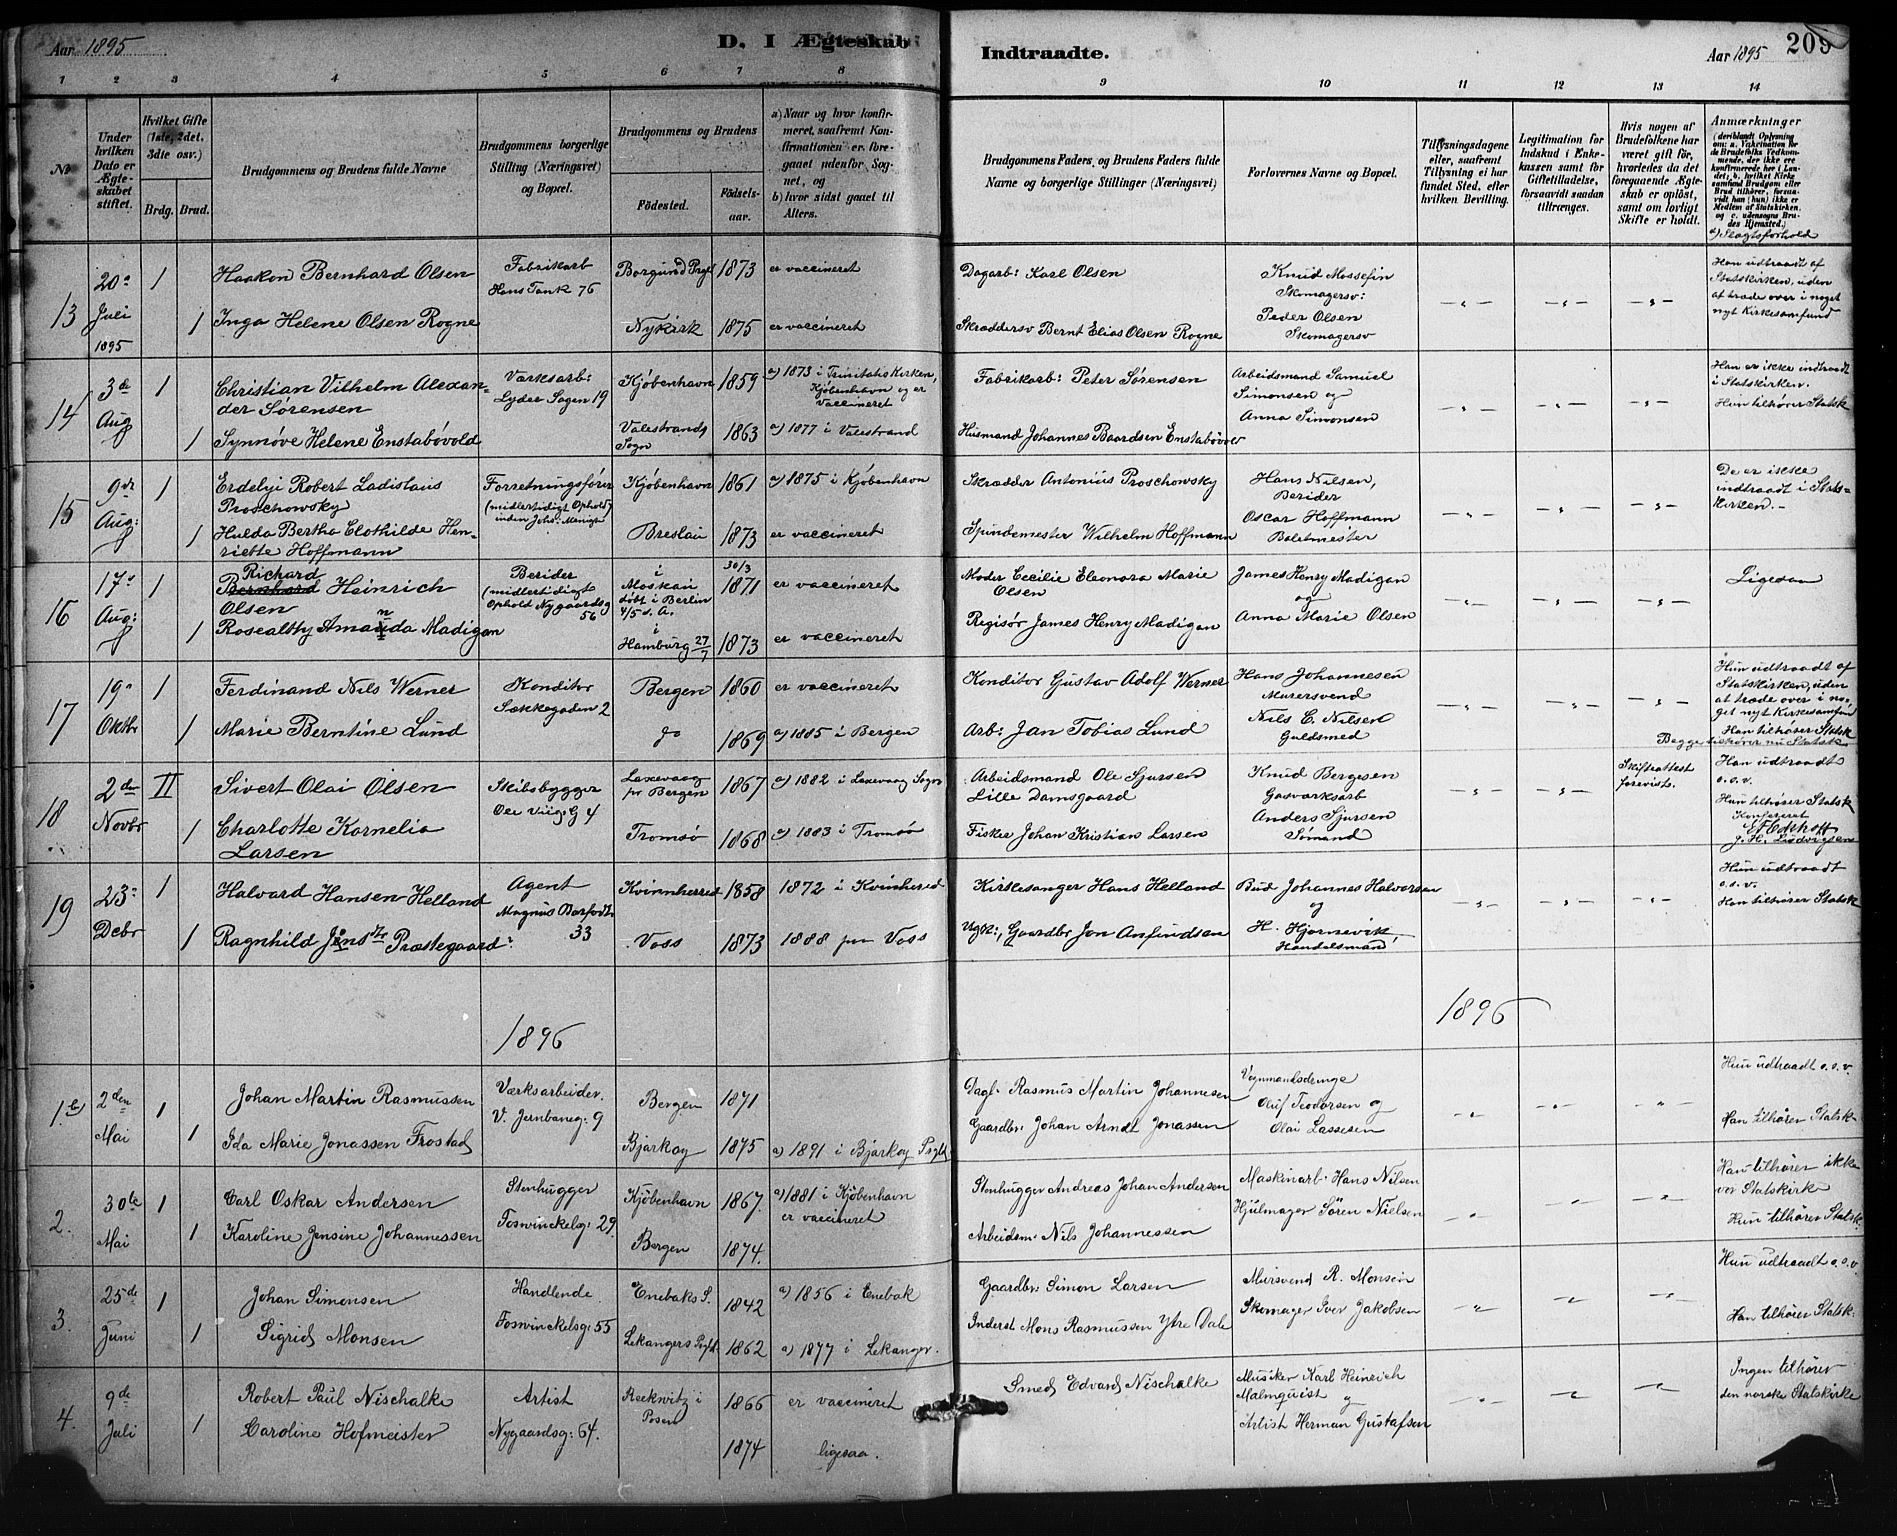 Aar 1895
D. I Ægteskab Indtraadte.
Aar 1895
209
1 2 3 4 5 6 7 8 9 10 11 12 13 14
No
Under hvilken Dato er Ægteskabet stiftet.
Hvilket Gifte (1ste, 2det, 3dte osv.)
Brdg. Brud.
Brudgommens og Brudens fulde Navne
Brudgommens borgerlige Stilling (Næringsvei) og Bopæl.
Brudgommens og Brudens
Födested.
Födsels-aar.
a) Naar og hvor konfirmeret, saafremt Konfirmationen er foregaaet udenfor Sognet, og
b) hvor sidst gaaet til Alters.
Brudgommens Faders, og Brudens Faders fulde Navne og borgerlige Stillinger (Næringsvei)
Forlovernes Navne og Bopæl.
Tillysningsdagene eller, saafremt Tillysning ei har fundet Sted, efter hvilken Bevilling.
Legitimation for Indskud i Enkekassen samt for Giftetilladelse, forsaavidt saadan tiltrænges.
Hvis nogen af Brudefolkene har været gift för, hvorledes da det foregaaende Ægteskab er oplöst, samt om lovligt Skifte er holdt.
Anmærkninger
(deriblandt Oplysning om: a. Vakcination for de Brudefolks Vedkommende, der ikke ere konfirmerede her i Landet; b. hvilket Kirkesamfund Brudgom eller Brud tilhörer, forsaavidt han (hun) ikke er Medlem af Statskirken. og c. udensogns Brudes Hjemsted.)
d) Slagtsforhold
13
20de Juli 1895
1
Haakon Bernhard Olsen
Fabrikarb Hans Tank 76
Borgund Prgld
1873
er vaccineret
Dagarb: Karl Olsen
Knud Mossefin Skomagersv:
Peder Olsen Skomagersv
Han udtraadt af Statskirken, uden at træde over i noget nyt Kirkesamfund
1
Inga Helene Olsen Rogne
Nykirk
1875
er vaccineret
Skræddersv Bernt Elias Olsen Rogne
14
3de Aug
1
Christian Vilhelm Alexander Sørensen
Værksarb: Lyder Sagen 19
Kjöbenhavn
1859
a) 1873 i Trinitatis Kirken, Kjöbenhavn og er vaccineret
Fabrikarb: Peter Sørensen
Arbeidsmand Samuel Simonsen og
Anna Simonsen
Han er ikke indtraadt i Statskirken.
Hun tilhører Statsk
1
Synnøve Helene Enstabövold
Valestrands Sogn
1863
a) 1877 i Valestrand
Husmand Johannes Baardsen Enstabövold
15
9de Aug:
1
Erdelyi Robert Ladislaus Proschowsky
Forretningsfører (midlertidigt Ophold) inden Johs. Menigh
Kjöbenhavn
1861
a) 1875 i Kjöbenhavn
Skrædder Antonius Proschowsky
Hans Nilsen, Berider
Oscar Hoffmann Baletmester
De er ikke indtraadt i Statskirken.
1
Hulda Bertha Clothilde Henriette Hoffmann
Breslau
1873
er vaccineret
Spundemester Wilhelm Hoffmann
16
17de Aug:
1
Richard
Bernhard Heinrich Olsen
Berider (midlertidigt Ophold Nygaardsg 56
i Moskau döbt i Berlin 4/5 s. A.
30/3 1871
er vaccineret
Moder Cecilie Eleonora Marie Olsen
James Henry Madigan og
Anna Marie Olsen
Ligesaa
1
Rosealthy Amanda Madigan
i Hamburg 27/7
1873
er vaccineret
Regisør James Henry Madigan
17
19de Oktbr
1
Ferdinand Nils Werner
Konditor Sækkegaden 2
Bergen
1860
er vaccineret
Konditor Gustav Adolf Werner
Hans Johannesen Murersvend
Nils C. Nilsen Guldsmed
Hun udtraadt af Statskirken, uden at træde over i noget nyt Kirkesamfund
Han tilhører Statsk
Begge tilhører nu Statsk
1
Marie Berntine Lund
do
1869
a) 1885 i Bergen
Arb: Jan Tobias Lund
18
2den Novbr
II
Sivert Olai Olsen
Skibsbygger Ole Viigs G 4
Laxevaag pr Bergen
1867
a) 1882 i Laxevaag Sogn
Arbeidsmand Ole Sjursen Lille Damsgaard
Knud Bergesen Gasværksarb
Anders Sjursen Sømand
Skifteattest forevists.
Han udtraadt o.s.v.
Hun tilhører Statsk
Konfereret
J. H. Ludvigsen
1
Charlotte Kornelia Larsen
Tromsö
1868
a) 1883 i Tromsö
Fisker Johan Kristian Larsen
19
23de Debr
1
Halvard Hansen Helland
Agent Magnus Barfodts 33
Kvinnherred
1858
1872 i Kvinherred
Kirkesanger Hans Helland
Bud Johannes Halvorsen og
H. Hjornevik Handelsmand
Hun udtraadt o.s.v.
Han tilhører Statsk
1
Ragnhild Jonsdtr Præstegaard
Voss
1873
1888 paa Voss
Ugk:, Gaardbr Jon Anfindsen
1896
1896
1.
2den Mai
1
Johan Martin Rasmussen
Værksarbeider. V. Jernbaneg: 9
Bergen
1871
Dagl. Rasmus Martin Johannesen
Vognmandsdrenge Oluf Teodorsen og
Olai Lassesen
Hun udtraadt o.s.v.
Han tilhører Statsk
1
Ida Marie Jonassen Frostad
Bjarkøy
1875
a) 1891 i Bjarkøy Prgld
Gaardbr: Johan Arndt Jonassen
2.
30te Mai
1
Carl Oskar Andersen
Stenhugger Foswinckelsg: 29.
Kjöbenhavn
1867.
a) 1881 i Kjöbenhavn er vaccineret
Stenhugger Andreas Johan Andersen
Maskinarb. Hans Nilsen
Hjulmager Sören Nielsen
Han tilhører ikke vor Statskirke
Hun tilhører Statsk.
1
Karoline Jensine Johannessen
Bergen
1874.
Arbeidsm. Nils Johannessen
3.
25de Juni
1
Johan Simonsen
Handlende. Foswinckelsg: 55
Enebaks S.
1842
a) 1856 i Enebak
Gaardbr: Simon Larsen
Mursvend R. Monsen
Skomager Iver Jakobsen
Hun udtraadt o.s.v.
Han tilhører Statsk.
1
Sigrid Monsen
Lekangers Prgld.
1862
a) 1877 i Lekanger.
Inderst Mons Rasmussen Ytre Dale
4.
9de Juli
Robert Paul Nischalke
Artist Nygaardsg: 64.
Reckwitz i Posen
1866
er vaccineret
Smed Edvard Nischalke
Musiker Karl Heinrich Malmquist og
Artist Herman Gustafsen
Ingen tilhører den norske Statskirke
1
Caroline Hofmeister
1874
ligesaa.